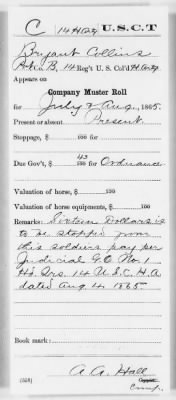 C 14 H.Arty U.S.C.T
Bryant Collins
Batty B, 14 Reg't U. S. Col'd H. Arty.
Appears on
Company Muster Roll
for July & Aug, 1865.
Present or absent Present
Stoppage, $ 100 for
Due Gov't, $ 43/100 for Ordnance
Valuation of horse, $ 100
Valuation of horse equipments, $ 100
Remarks: Sixteen Dollars is
to be stopped from
this soldiers pay per
Judicial G.O. No. 1
Hd. Qrs. 14 U.S.C.H.A
dated Aug 14 1865
Book mark:
A A Hall
(358) Copyist.